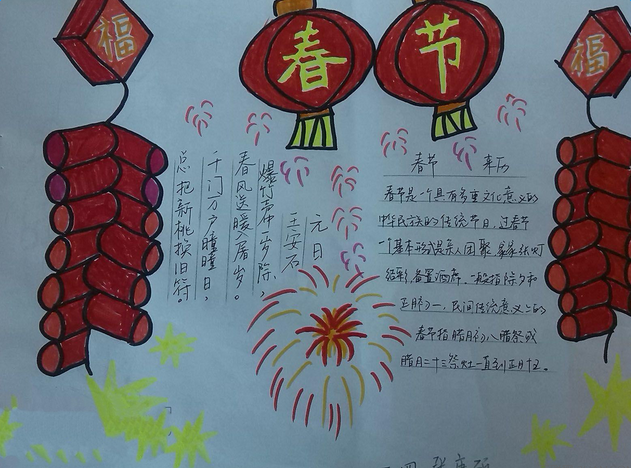 福
春节
福
元日
王安石
爆竹声中一岁除，
春风送暖入屠岁。
千门万户瞳瞳日，
总把新桃换旧符。
春节 来历
春节是一个具有多重文化意义的
中华民族的传统节日，过春节
一个基本形式是亲人团聚，家家张灯
结彩，备置酒席。一般指除夕和
正月初一，民间传统意义上的
春节指腊月初八腊祭或
腊月二十三祭灶一直到正月十五。